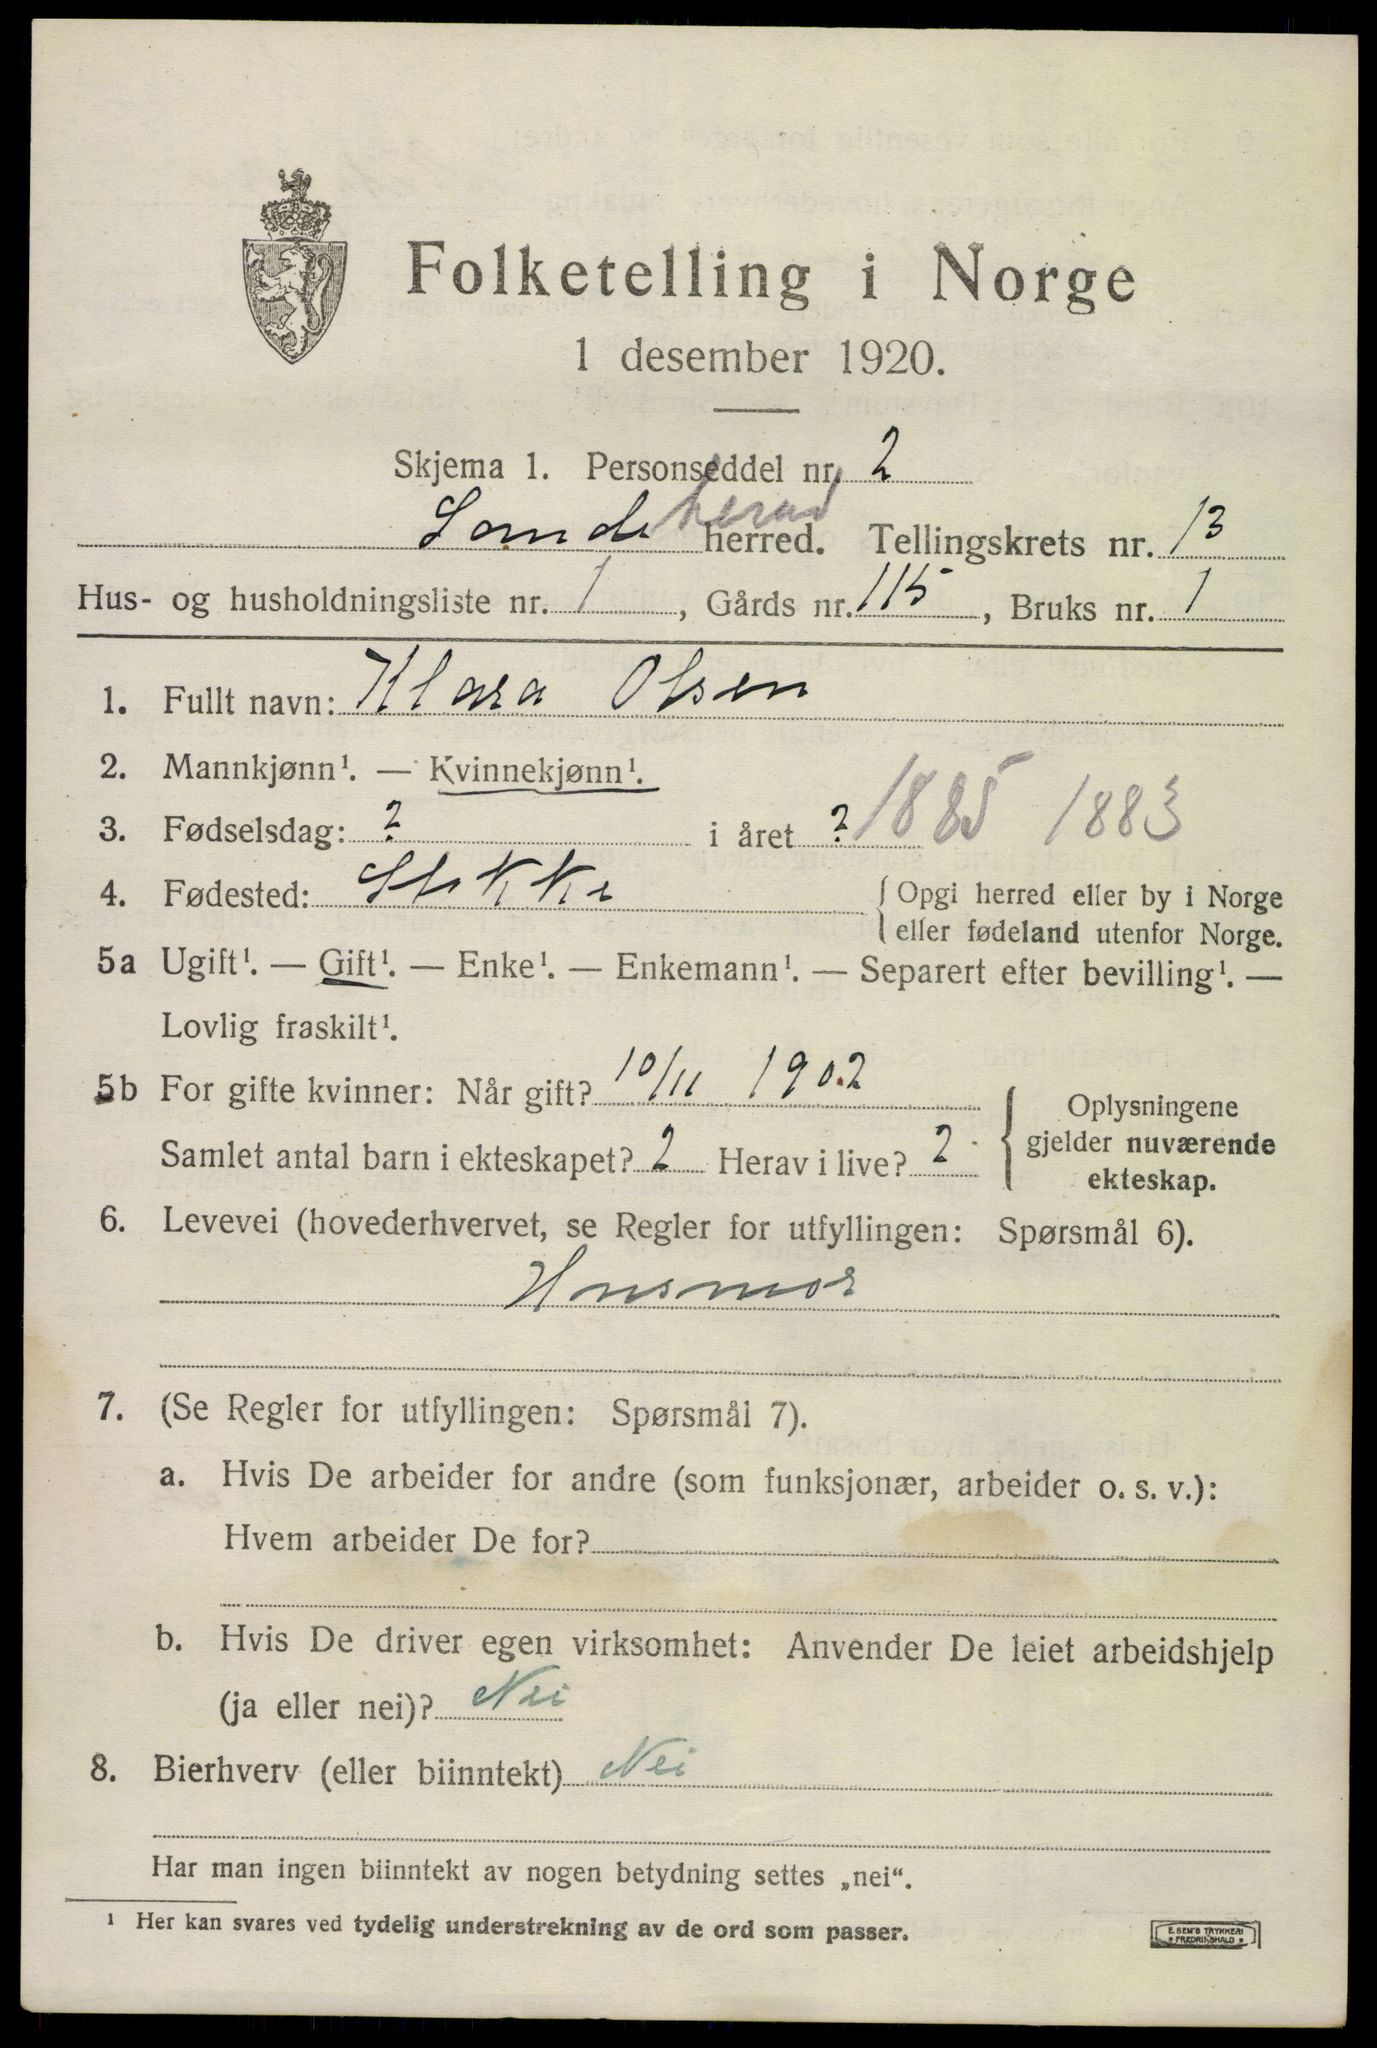 Folketelling i Norge
1 desember 1920.
Skjema 1. Personseddel nr. 2
Sande herad herred. Tellingskrets nr. 13
Hus- og husholdningsliste nr. 1, Gårds nr. 115, Bruks nr. 1
1. Fullt navn: Klara Olsen
2. Mannkjønn¹. — Kvinnekjønn¹.
3. Fødselsdag: ? i året ? 1885 1883
4. Fødested: Stokke { Opgi herred eller by i Norge
eller fødeland utenfor Norge.
5a Ugift¹. — Gift¹. — Enke¹. — Enkemann¹. — Separert efter bevilling¹. —
Lovlig fraskilt¹.
5b For gifte kvinner: Når gift? 10/11 1902
Samlet antal barn i ekteskapet? 2 Herav i live? 2
{ Oplysningene
gjelder nuværende
ekteskap.
6. Levevei (hovederhvervet, se Regler for utfyllingen: Spørsmål 6).
Husmor
7. (Se Regler for utfyllingen: Spørsmål 7).
a. Hvis De arbeider for andre (som funksjonær, arbeider o. s. v.):
Hvem arbeider De for?
b. Hvis De driver egen virksomhet: Anvender De leiet arbeidshjelp
(ja eller nei)? Nei
8. Bierhverv (eller biinntekt) Nei
Har man ingen biinntekt av nogen betydning settes „nei“.
¹ Her kan svares ved tydelig understrekning av de ord som passer.
E. SEM'S TRYKKERI
FREDRIKSHALD